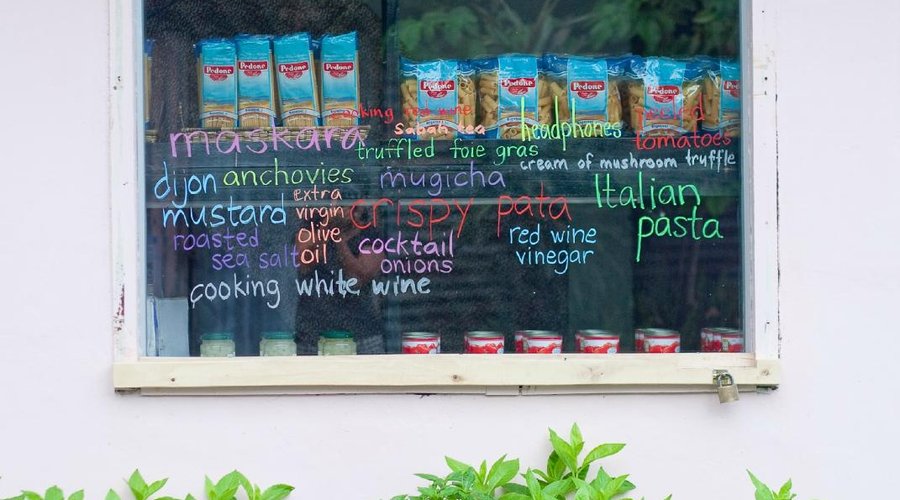 Pedone
Pedone
Pedone
Pedone
Pedone
Pedone
Pedone
Pedone
cooking red wine
maskara
Sabah tea
headphones
tomatoes
truffled foie gras
cream of mushroom truffle
dijon
mustard
anchovies
mugicha
Italian
pasta
extra
virgin
olive
oil
crispy pata
roasted
sea salt
cocktail
onions
red wine
vinegar
cooking white wine